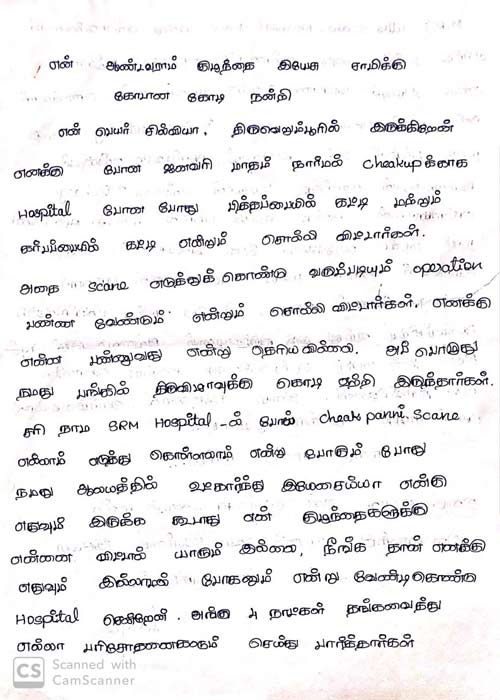 என் ஆண்டவராம் குழந்தை இயேசு சாமிக்கு
கோடான கோடி நன்றி
என் பெயர் சில்வியா. திருவெறும்பூரில் இருக்கிறேன்
எனக்கு போன ஜனவரி மாதம் நார்மல் Checkup க்காக
Hospital போன போது பித்தப்பையில் கட்டி மற்றும்
கர்ப்பபையில் கட்டி என்றும் சொல்லி விட்டார்கள்.
அதை Scane எடுத்துக் கொண்டு வரும்படியும் operation
பண்ண வேண்டும் என்றும் சொல்லி விட்டார்கள். எனக்கு
என்ன பண்ணுவது என்று தெரிய வில்லை. அப் பொழுது
நமது பங்கில் திருவிழாவுக்கு கொடி ஏற்றி இருந்தார்கள்.
சரி நாம SRM Hospital -ல் போய் Cheak panni. Scane,
எல்லாம் எடுத்து கொள்ளலாம் என்று போகும் போது
நமது ஆலயத்தில் உட்கார்ந்து இயேசையா எனக்கு
எதுவும் இருக்க கூடாது என் குழந்தைகளுக்கு
என்னை விட்டால் யாரும் இல்லை, நீங்க தான் எனக்கு
எதுவும் இல்லாமல் போகனும் என்று வேண்டி கொண்டு
Hospital சென்றேன். அங்கு 4 நாட்கள் தங்கவைத்து
எல்லா பரிசோதனைகளும் செய்து பார்த்தார்கள்
CS Scanned with
CamScanner